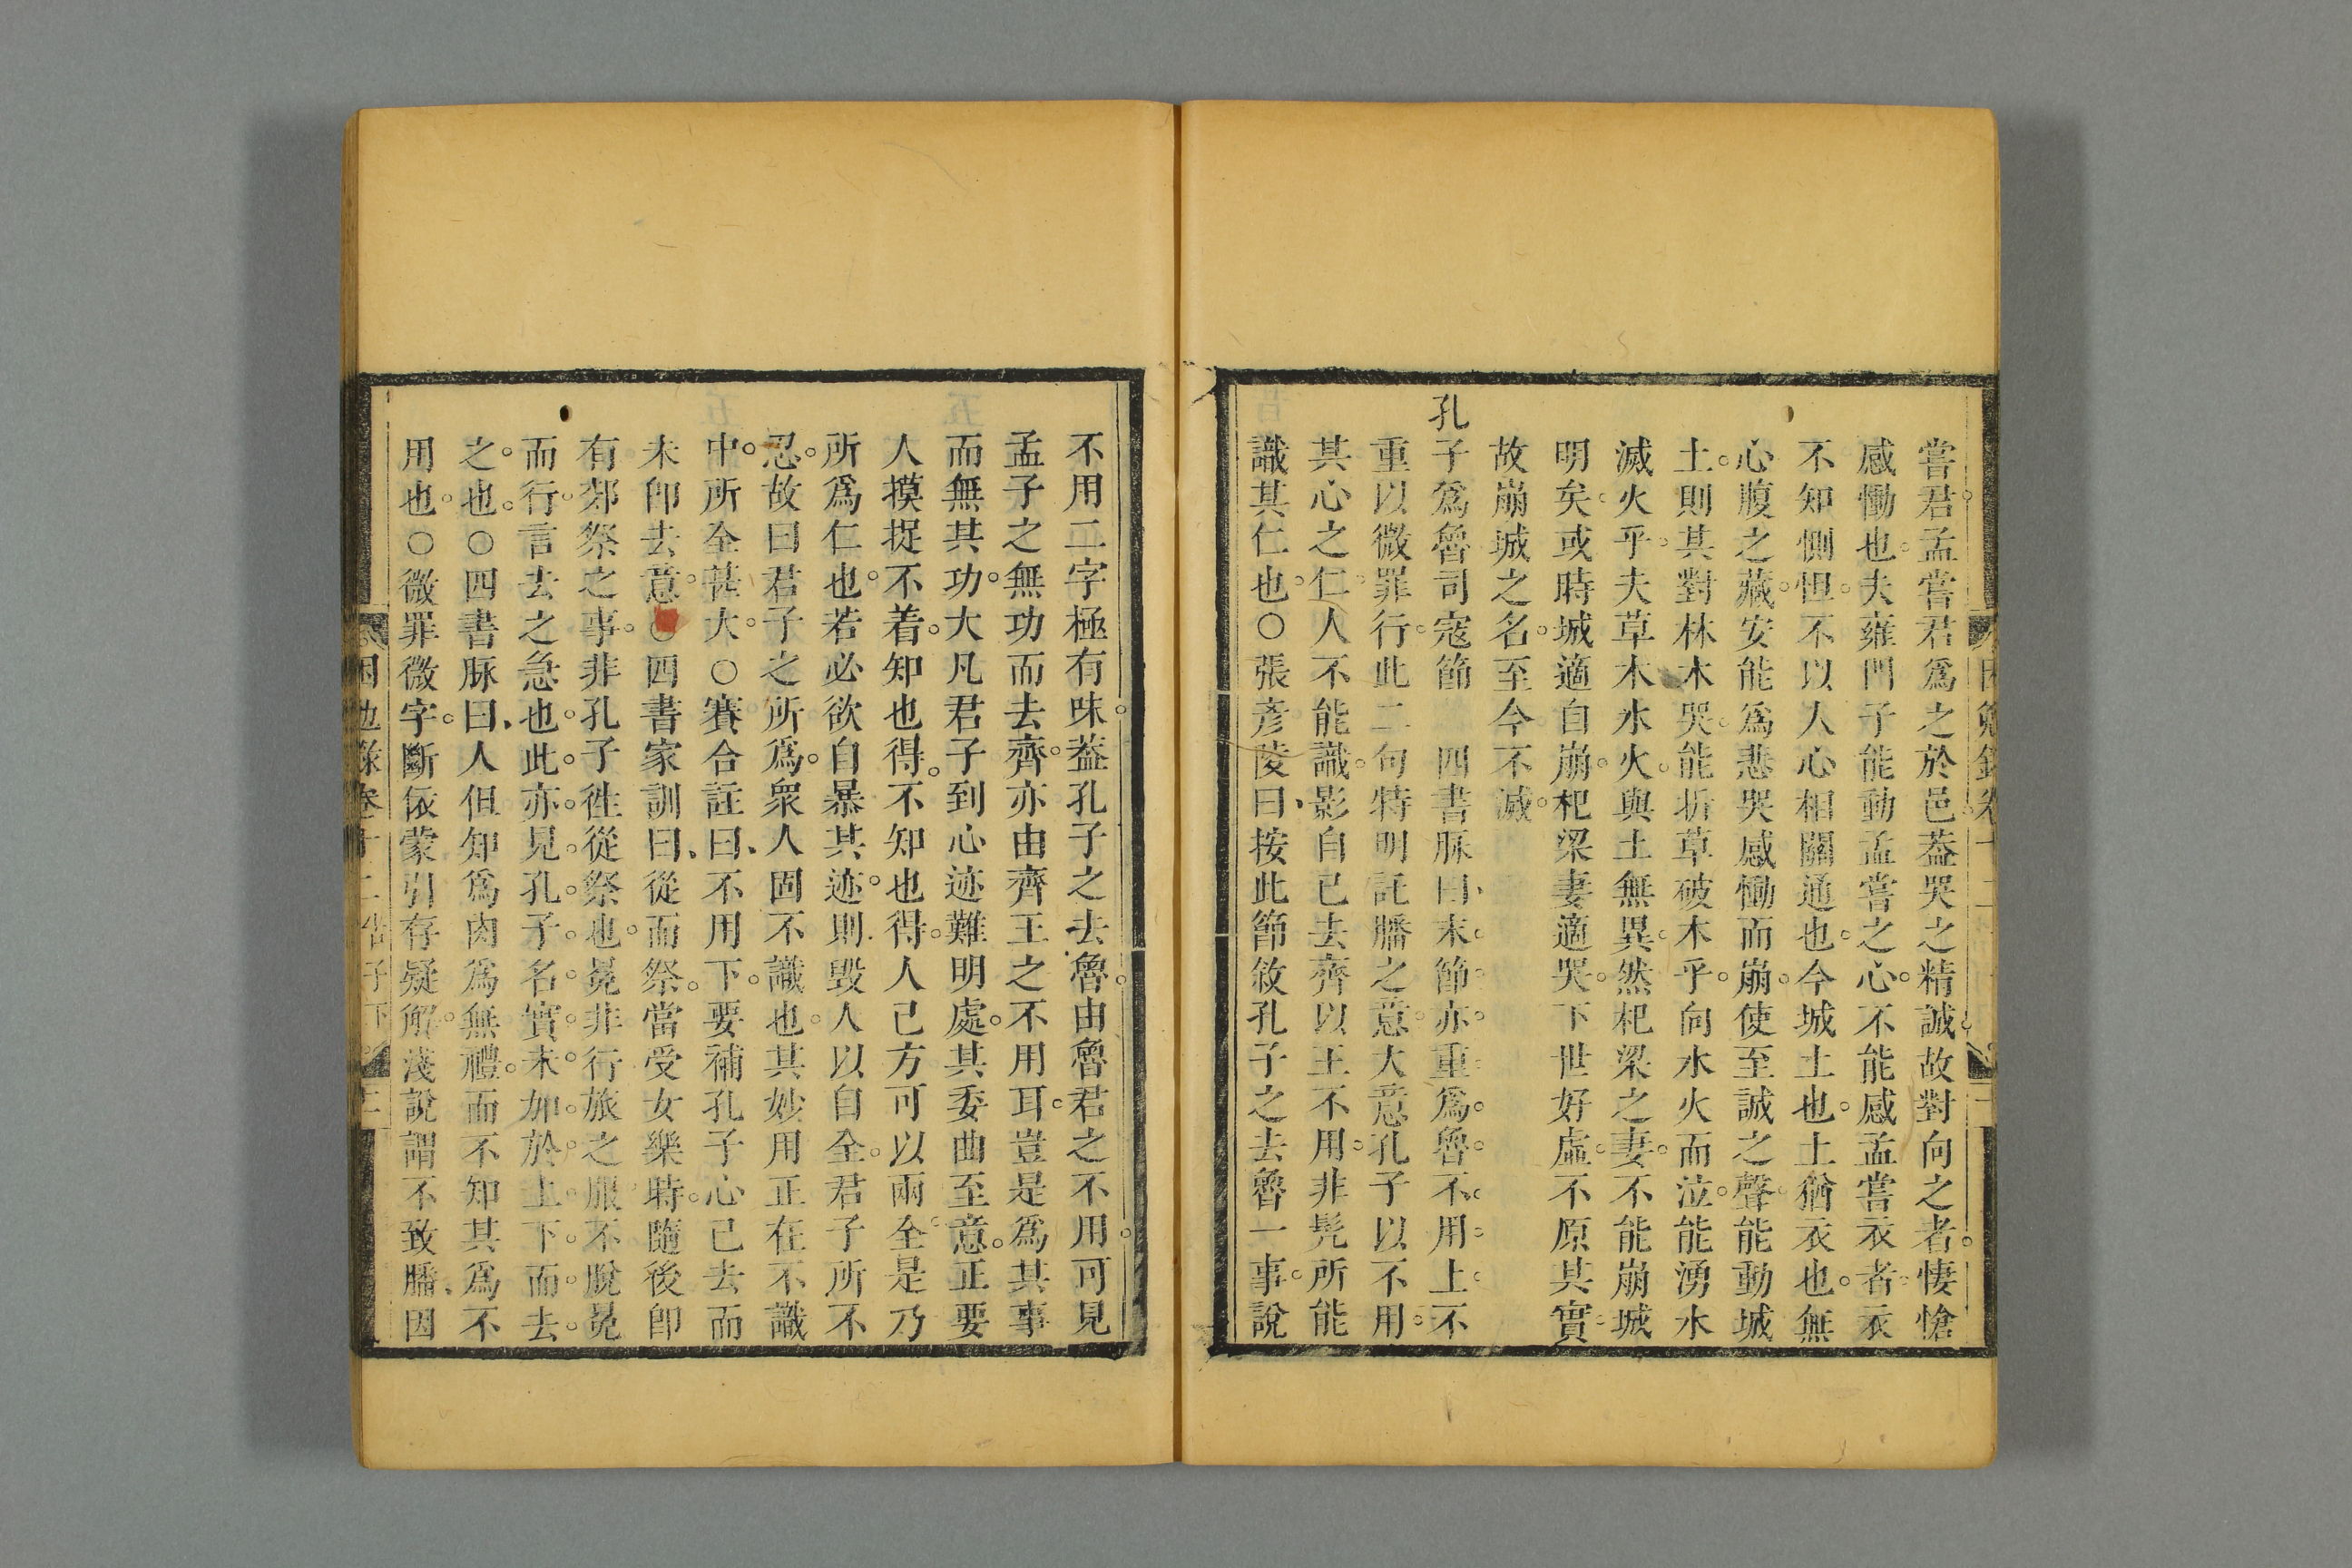 嘗君孟嘗君爲之於邑葢哭之精誠故對向之者悽愴
感慟也夫雍門子能動孟嘗之心不能感孟嘗衣者衣
不知惻怛不以人心相關通也今城土也土猶衣也無
心腹之藏安能爲悲哭感慟而崩使至誠之聲能動城
土則其對林木哭能折草破木乎向水火而泣能湧水
滅火乎夫草木水火與土無異然杞梁之妻不能崩城
明矣或時城適自崩杞梁妻適哭下世好虛不原其實
故崩城之名至今不滅
孔子爲魯司寇節 四書脉曰末節亦重爲魯不用上不
重以微罪行此二句特明託膰之意大意孔子以不用
其心之仁人不能識影自已去齊以王不用非髡所能
識其仁也○張彥陵曰按此節敘孔子之去魯一事說
不用二字極有味葢孔子之去魯由魯君之不用可見
孟子之無功而去齊亦由齊王之不用耳豈是爲其事
而無其功大凡君子到心迹難明處其委曲至意正要
人摸捉不着知也得不知也得人己方可以兩全是乃
所爲仁也若必欲自暴其迹則毀人以自全君子所不
忍故曰君子之所爲衆人固不識也其妙用正在不識
中所全甚大○賽合註曰不用下要補孔子心已去而
未卽去意○四書家訓曰從而祭當受女樂時隨後卽
有郊祭之事非孔子徃從祭也冕非行旅之服不脫冕
而行言去之急也此亦見孔子名實未加於上下而去
之也○四書脉曰人但知爲肉爲無禮而不知其爲不
用也○微罪微字斷依蒙引存疑解淺說謂不致膰因
困勉錄卷十二告子下 二